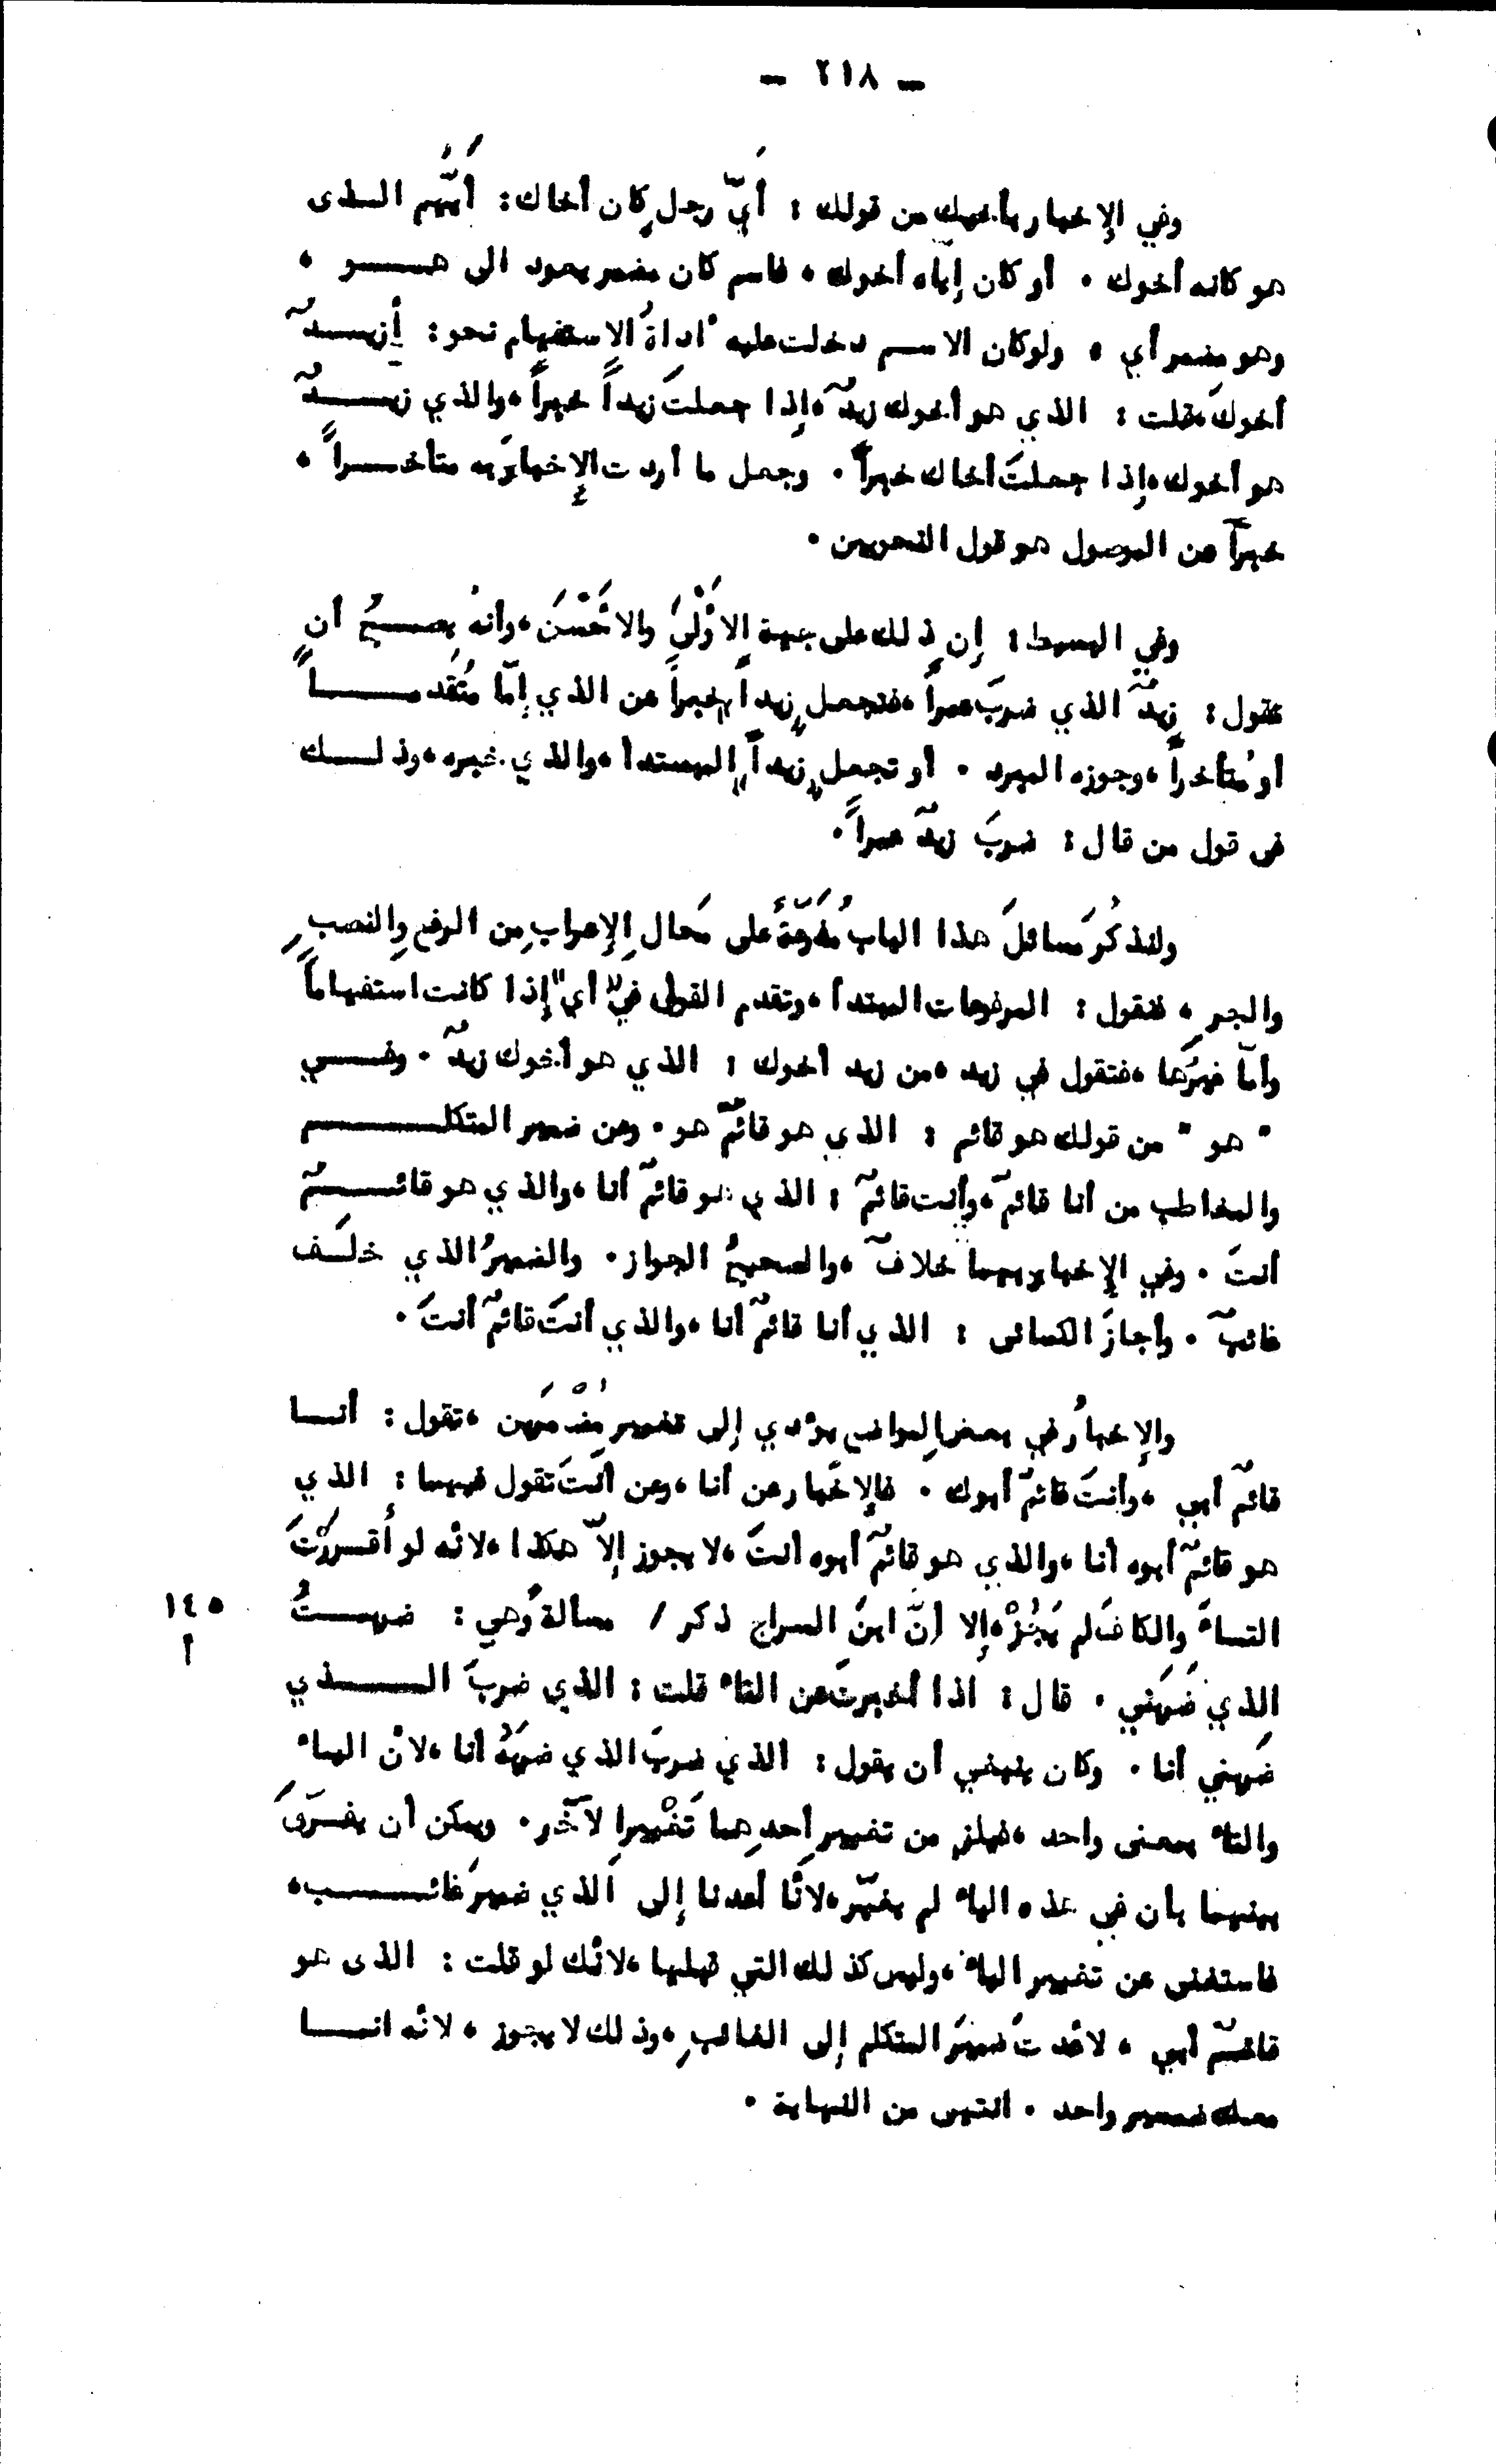 — ٢١٨ —
وفي الإخبار بأخيك من قولك : أَيُّ رجلٍ كان أخاك : أَيُّهم الـذى
هو كانه أخوك ٠ أو كان إيّاه أخوك ، فاسم كان مضمر يعود الى هـو ،
وهو مضمر أي ، ولو كان الاسم دخلت عليه اداةُ الاستفهام نحو : أزيـدٌ
أخوك ، قلت : الذي هو أخوك زيدٌ ، إذا جعلتَ زيداً خبراً ، والذي زيـدٌ
هو أخوك ، إذا جعلتَ أخاك خبراً ٠ وجعل ما أردت الإخبارَ به متأخـراً ،
خبراً عن الموصول هو قول النحويين ٠
وفي البسيط : إن ذلك على جهة الأَوْلَى والأَحْسَن ، وأنه يصـحُ أن
تقول : زيدٌ الذي ضربَ عمراً ، فتجعل "زيداً" خبراً عن الذي إمّا مُتَقدمـاً
أو مُتأخراً ، وجوزه المبرد ٠ أو تجعل "زيداً" المبتدأ ، والذي خبره ، وذلـك
فى قول من قال : ضربَ زيدٌ عمراً ٠
ولنذكُر مسائلَ هذا الباب مُفَرَّعَةً على مَحال الإعرابِ من الرفعِ والنصبِ
والجرِ ، فنقول : المرفوعات المبتدأ ، وتقدم القول في "أي" إذا كانت استفهاماً
وأمّا غيرُها ، فتقول في زيد ، من زيد أخوك : الذي هو أخوك زيدٌ ٠ وفـي
" هو " من قولك هو قائم : الذي هو قائمٌ هو ٠ وعن ضمير المتكلـم
والمخاطب من أنا قائمٌ ، وأنت قائمٌ : الذي هو قائمٌ أنا ، والذي هو قائـمٌ
أنتَ ٠ وفي الإخبار بهما خلافٌ ، والصحيحُ الجواز ٠ والضميرُ الذي خلَف
غائبٌ ٠ وأجازَ الكسائى : الذي أنا قائمٌ أنا ، والذي أنتَ قائمٌ أنتَ ٠
والإخبارُ في بعض المواضع يؤدي إلى تغيير مُضْمَرَين ، تقول : أنـا
قائمٌ أبي ، وأنتَ قائمٌ أبوك ٠ فالإخبار عن أنا ، وعن أنتَ تقول فيهما : الذي
هو قائمٌ أبوه أنا ، والذي هو قائمٌ أبوه أنتَ ، لا يجوز إلاّ هكذا ، لأنه لو أقـررْتَ
اليـاءَ والكافَ لم يَجُزْ ، إلا أنّ ابنَ السراج ذكر / مسألة وهي : ضربـتُ
١٤٥
أ
الذي ضَرَبَني ٠ قال : اذا أخبرتَ عن التاء قلت : الذي ضربَ الـذي
ضَرَبني أنا ٠ وكان ينبغي أن يقول : الذي ضربَ الذي ضربَهُ أنا ، لأن اليـاء
والتاء بمعنى واحد ، فيلزم من تغيير أحدِهما تَغْيير الآخر ٠ ويمكن أن يفـرّق
بينهما بأن في هذه الياء لم يغيّر ، لأنّا أعدنا إلى الذي ضميرَ غائـب ،
فاستغنى عن تغيير الياء ، وليس كذلك التي قبلها ، لأنك لو قلت : الذى هو
قائمٌ أبي ، لأعدتَ ضميرَ المتكلم إلى الغائبِ ، وذلك لا يجوز ، لأنه انمـا
معك ضمير واحد ٠ انتهى من النهاية ٠